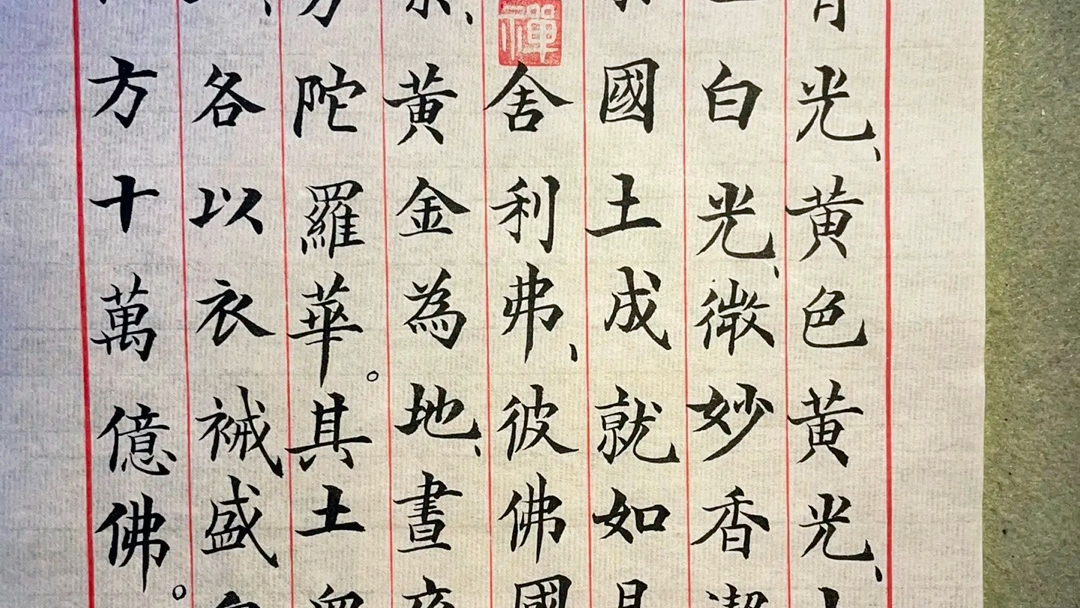 光、黄色黄光、
白光、微妙香潔
國土成就如
禪
舍利弗、彼佛國
黄金為地、晝夜
陀羅華。其土眾
各以衣裓盛
方十萬億佛。